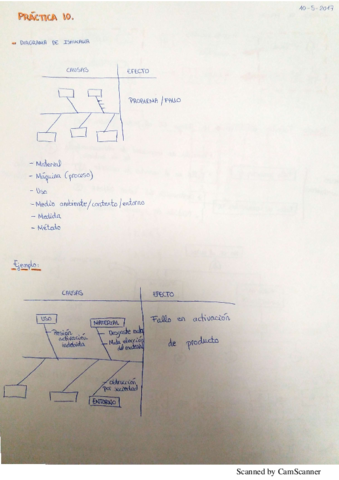 10-5-2017
PRÁCTICA 10.
- DIAGRAMA DE ISHIKAWA
CAUSAS EFECTO
PROBLEMA / FALLO
- Material
- Máquina (proceso)
- Uso
- Medio ambiente/contexto/entorno
- Medida
- Método
Ejemplo:
CAUSAS EFECTO
USO
- Presión activación
MATERIAL
- Desgaste
- Mala
Fallo en activación
de producto
- obstrucción
por suciedad
ENTORNO
Scanned by CamScanner